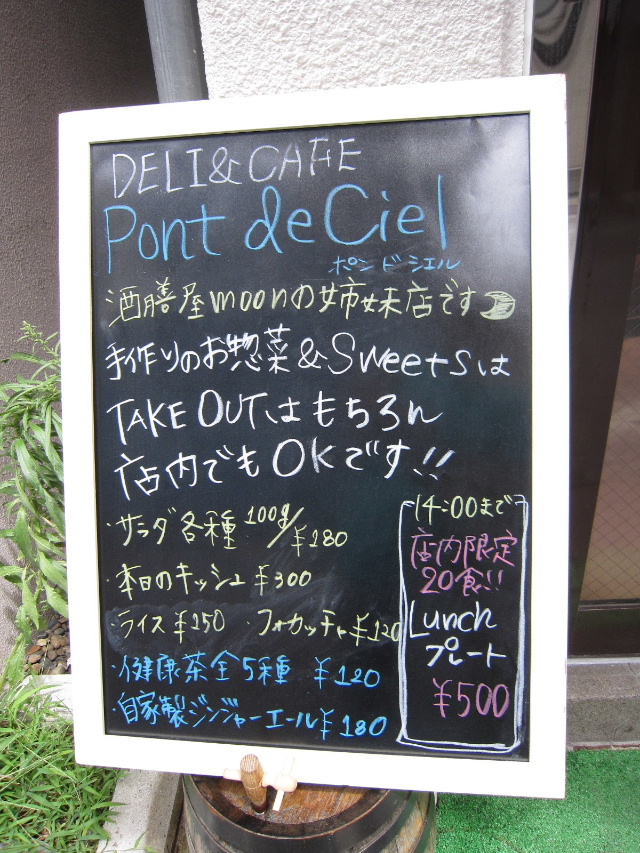 DELI&CAFE
Pont de Ciel
ポンドシエル
酒膳屋moonの姉妹店です
手作りのお惣菜&Sweetsは
TAKE OUTはもちろん
店内でもOKです!!
・サラダ各種 100g/¥280
・本日のキッシュ ¥300
・ライス¥150 ・フォカッチャ¥120
・健康茶全5種 ¥120
・自家製ジンジャーエール¥180
14:00まで
店内限定
20食!!
Lunch
プレート
¥500